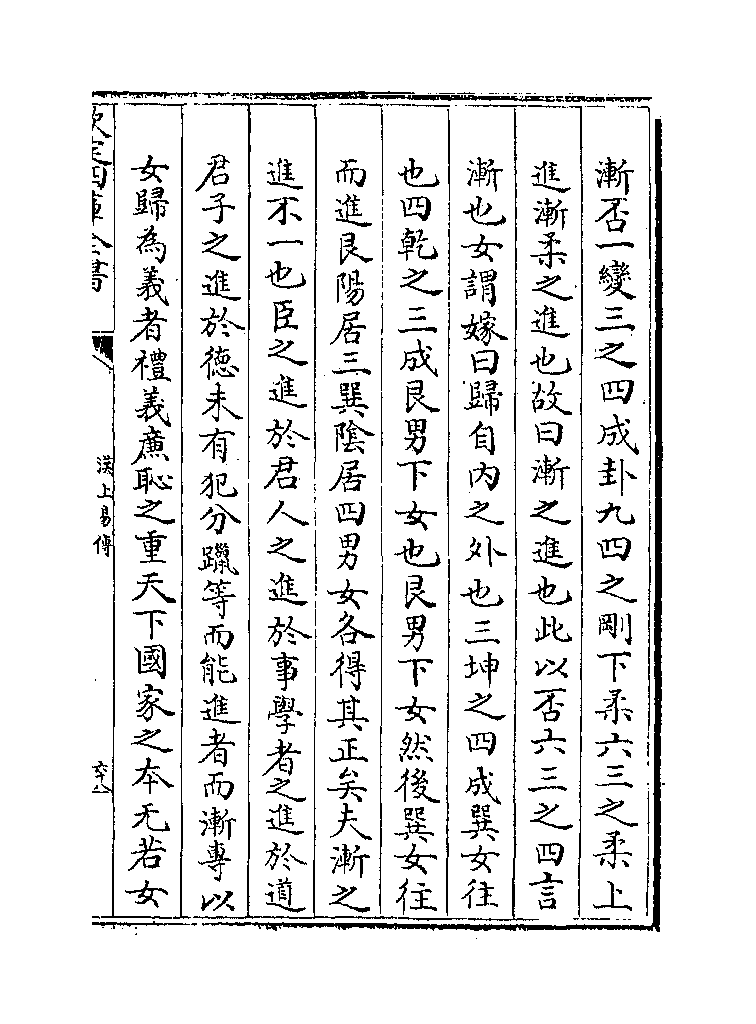 漸否一變三之四成卦九四之剛下柔六三之柔上
進漸柔之進也故曰漸之進也此以否六三之四言
漸也女謂嫁曰歸自内之外也三坤之四成巽女往
也四乾之三成艮男下女也艮男下女然後巽女往
而進艮陽居三巽陰居四男女各得其正矣夫漸之
進不一也臣之進於君人之進於事學者之進於道
君子之進於徳未有犯分躐等而能進者而漸專以
女歸為義者禮義廉恥之重天下國家之本无若女
欽定四庫全書
漢上易傳